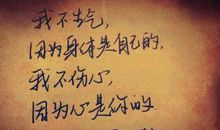 我不生气,
因为身体是自己的.
我不伤心,
因为心是你的